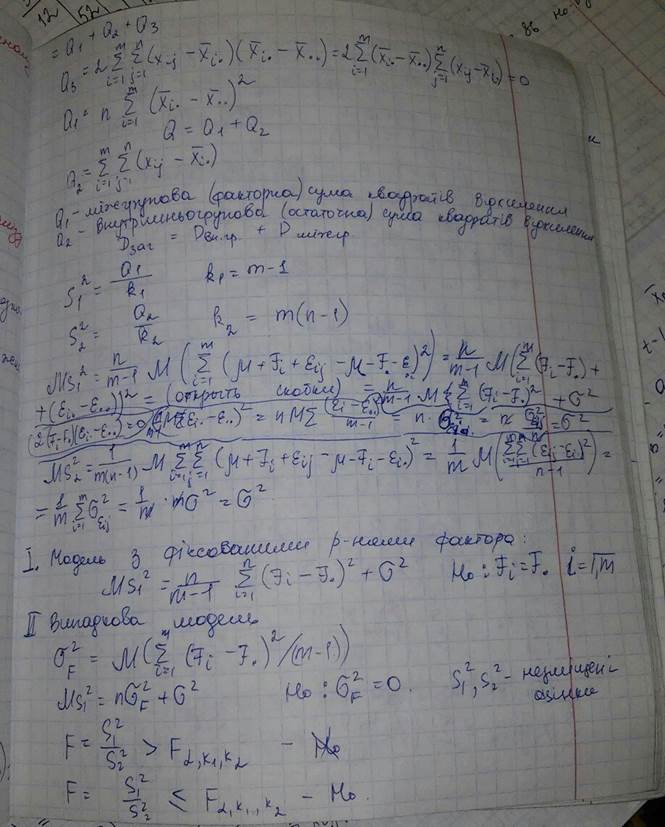 = Q₁ + Q₂ + Q₃
Q₃ = 2 Σᵢ₌₁ᵐ Σⱼ₌₁ⁿ (xᵢⱼ − x̄ᵢ.)(x̄ᵢ. − x̄..) = 2 Σᵢ₌₁ᵐ (x̄ᵢ. − x̄..) Σⱼ₌₁ⁿ (xᵢⱼ − x̄ᵢ.) = 0
Q₁ = n Σᵢ₌₁ᵐ (x̄ᵢ. − x̄..)²
Q = Q₁ + Q₂
Q₂ = Σᵢ₌₁ᵐ Σⱼ₌₁ⁿ (xᵢⱼ − x̄ᵢ.)
Q₁ - міжгрупова (факторна) сума квадратів відхилення
Q₂ - внутрішньогрупова (остаточна) сума квадратів відхилення
Dзаг = Dвн.гр. + Dміжгр
S₁² = Q₁/k₁ k₁ = m−1
S₂² = Q₂/k₂ k₂ = m(n−1)
MS₁² = n/(m−1) M(Σᵢ₌₁ᵐ (μ + Fᵢ + εᵢⱼ − μ − F. − ε..)²) = n/(m−1) M(Σᵢ₌₁ᵐ (Fᵢ − F.) +
+ (εᵢ. − ε..))² = (открыть скобки) = n/(m−1) M{Σᵢ₌₁ᵐ (Fᵢ − F.)² + σ²
(2(Fᵢ − F.)(εᵢ. − ε..) = 0 MΣ(εᵢ. − ε..)² = n MΣ (εᵢ. − ε..)²/(m−1) = n · = = σ²
MS₂² = 1/m(n−1) M Σᵢ₌₁ᵐ Σⱼ₌₁ⁿ (μ + Fᵢ + εᵢⱼ − μ − Fᵢ − εᵢ.)² = 1/m M(Σᵢ₌₁ᵐ Σⱼ₌₁ⁿ (εᵢⱼ − εᵢ.)²/(n−1)) =
= 1/m Σᵢ₌₁ᵐ σ²εᵢⱼ = 1/m · mσ² = σ²
I. Модель з фіксованими р-нями фактора:
MS₁² = n/(m−1) Σᵢ₌₁ⁿ (Fᵢ − F.)² + σ² H₀: Fᵢ = F. i = 1,m
II Випадкова модель
σ²F = M(Σᵢ₌₁ᵐ (Fᵢ − F.)²/(m−1))
MS₁² = nσ²F + σ² H₀: σ²F = 0. S₁², S₂² - незміщені
оцінки
F = S₁²/S₂² > Fα,k₁,k₂ - H₀
F = S₁²/S₂² ≤ Fα,k₁,k₂ - H₀.